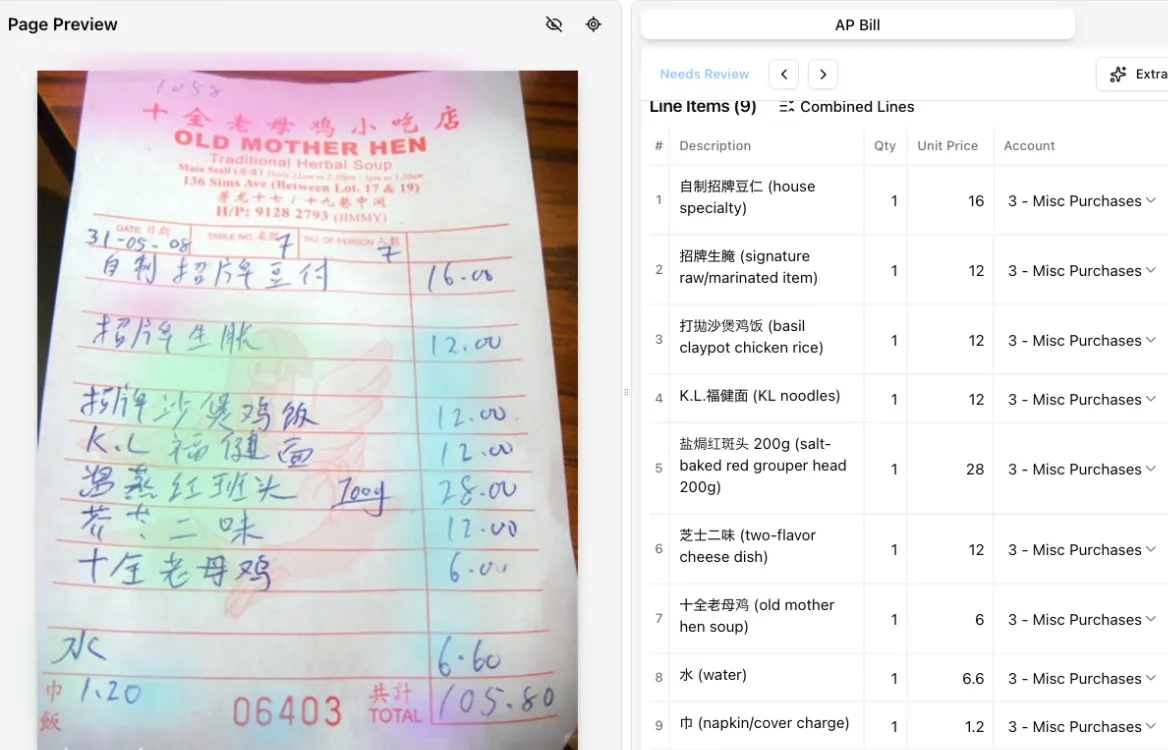 Page Preview
1058
十全老母鸡小吃店
OLD MOTHER HEN
Traditional Herbal Soup
136 Sims Ave (Between Lot. 17 & 19)
芽龙十七/十九巷中间
H/P: 9128 2793 (JIMMY)
DATE 日期
TABLE NO 桌號
NO. OF PERSON 人數
31-05-08
7
7
自制招牌豆付 16.00
招牌生 12.00
招牌沙煲鸡饭 12.00
K.L 福健面 12.00
蒸红班头 700g 28.00
二味 12.00
十全老母鸡 6.00
水 6.60
巾 1.20
飯
06403
共計
TOTAL
105.80
AP Bill
Needs Review
Extra
Line Items (9)
Combined Lines
# Description Qty Unit Price Account
1 自制招牌豆仁 (house specialty) 1 16 3 - Misc Purchases
2 招牌生腌 (signature raw/marinated item) 1 12 3 - Misc Purchases
3 打抛沙煲鸡饭 (basil claypot chicken rice) 1 12 3 - Misc Purchases
4 K.L.福健面 (KL noodles) 1 12 3 - Misc Purchases
5 盐焗红斑头 200g (salt-baked red grouper head 200g) 1 28 3 - Misc Purchases
6 芝士二味 (two-flavor cheese dish) 1 12 3 - Misc Purchases
7 十全老母鸡 (old mother hen soup) 1 6 3 - Misc Purchases
8 水 (water) 1 6.6 3 - Misc Purchases
9 巾 (napkin/cover charge) 1 1.2 3 - Misc Purchases